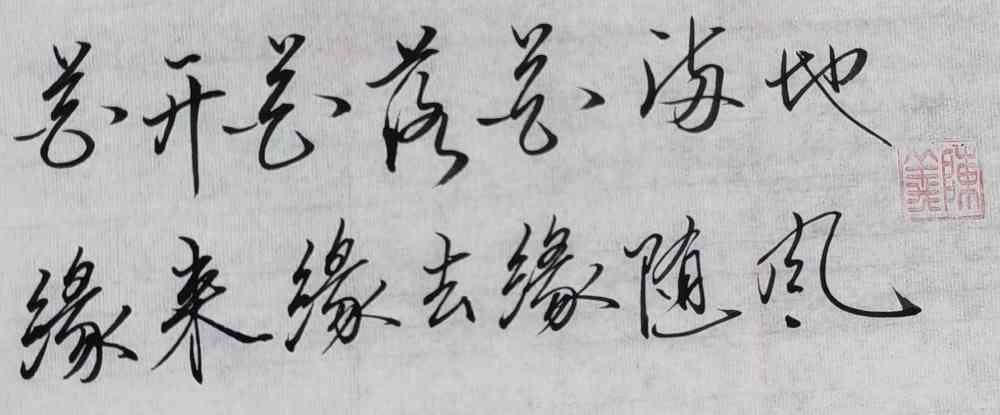 花开花落花满地
缘来缘去缘随风